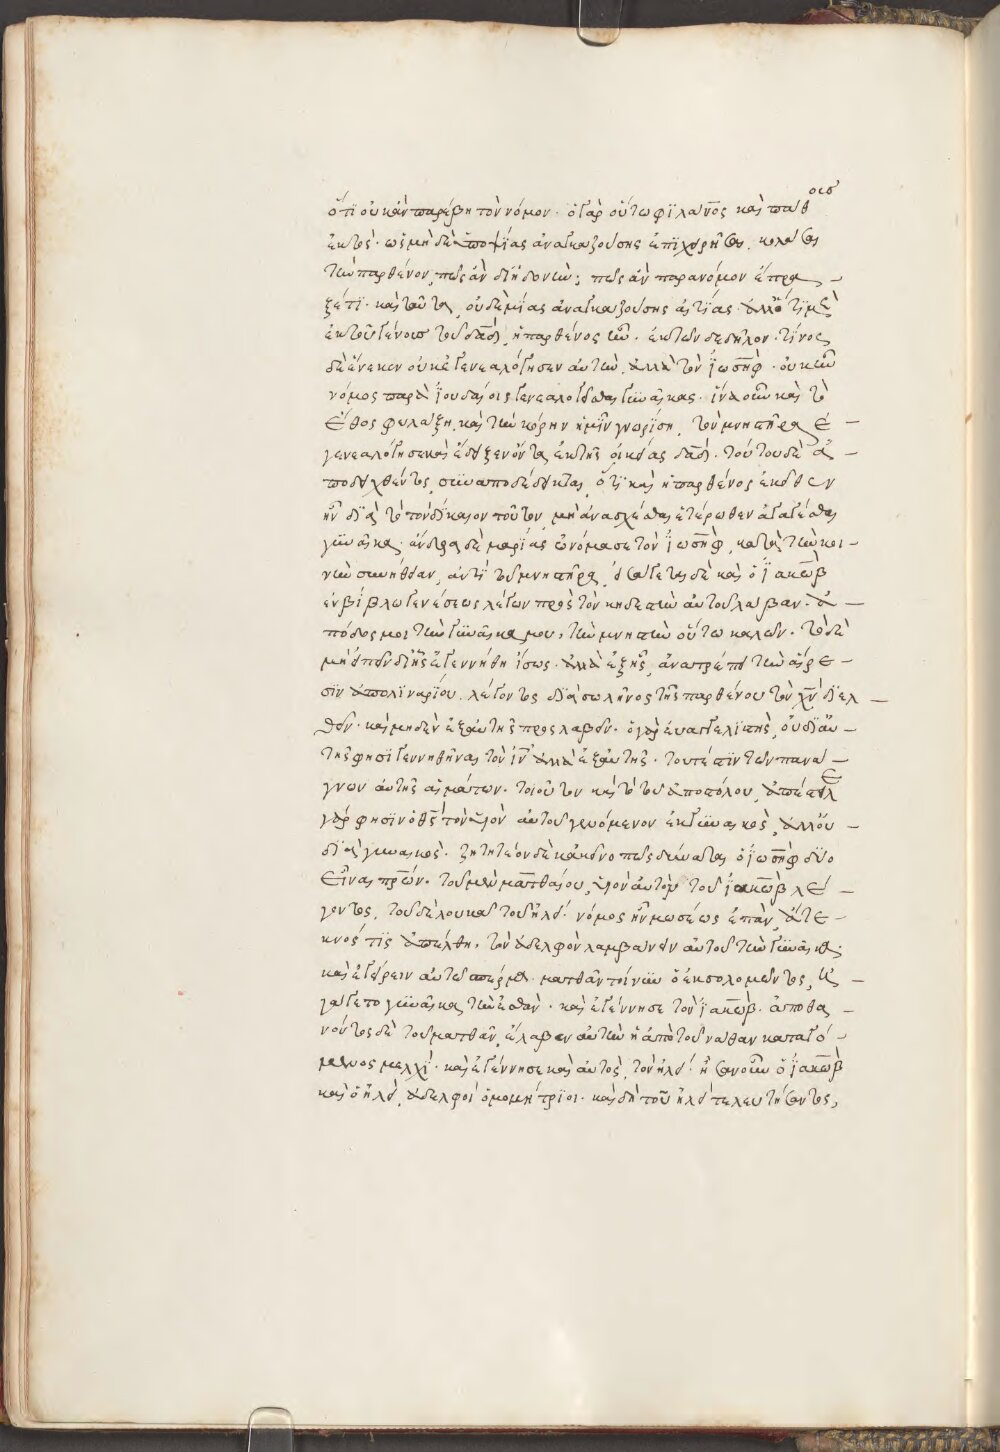 ὅτι οὐκ ἂν παρέβη τὸν νόμον. ὁ γὰρ οὕτω φιλανος καὶ παθ
οισ
ἐκτὸς. ὡς μὴ δὲ ὑποψίας ἀναγκαζούσης ἐπιχειρῆσαι κολάσαι
τὴν παρθένον, πῶς ἂν; πῶς ἂν παρανόμον ἔπρα
ξέ τι. καὶ ταῦτα, οὐδεμίας ἀναγκαζούσης αἰτίας. ἀλλ' ὅτι μὲν
ἐκ τοῦ γένους τοῦ δαδ, ἡ παρθένος ἦν. ἐκ τῶν δε δῆλον. τίνος
δὲ ἕνεκεν οὐκ ἐγενεαλόγησεν αὐτὴν, ἀλλὰ τὸν ἰωσηφ. οὐκ ἦν
νόμος παρὰ ἰουδαίοις γενεαλογεῖσθαι γυναῖκας. ἵνα οὖν καὶ τὸ
ἔθος φυλάξη, καὶ τὴν κόρην ἡμῖν γνωρίση, τὸν μνηστῆρα ἐ
γενεαλόγησε καὶ ἔδειξεν ὄντα ἐκ τῆς οἰκίας δαδ. τούτου δὲ ἀ
ποδειχθέντος, συναποδέδεικται, ὅτι καὶ ἡ παρθένος ἐκεῖθεν
ἦν διὰ τὸ τὸν δίκαιον τοῦτον, μὴ ἀνασχέσθαι ἑτέρωθεν ἀγαγέσθαι
γυναῖκα. ἄνδρα δὲ μαρίας ὠνόμασε τὸν ἰωσηφ, κατὰ τὴν κοι
νὴν συνήθειαν, ἀντὶ τοῦ μνηστῆρα, ὁ ἰακωβ
ἐν βίβλω γενέσεως λέγων πρὸς τὸν κηδεστὴν αὐτοῦ λαβαν. ἀ
πόδος μοι τὴν γυναῖκα μου, τὴν μνηστὴν οὕτω καλῶν. τὸ δὲ
μὴ εἰπεῖν δι' ἧς ἐγεννήθη ἴσως. ἀλλὰ ἐξ ἧς, ἀνατρέπει τὴν αἵρε
σιν ἀπολιναρίου λέγοντος διὰ σωλῆνος τῆς παρθένου τὸν χν διελ
θεῖν. καὶ μηδὲν ἐξ αὐτῆς προσλαβεῖν. ὁ γὰρ εὐαγγελιστὴς, οὐ δι' αὐ
τῆς φησὶ γεννηθῆναι τὸν ιν ἀλλὰ ἐξ αὐτῆς. τουτέστιν τῶν πανά
γνων αὐτῆς αἱμάτων. τοιοῦτον καὶ τὸ τοῦ ἀποστόλου, ἀπέστειλε
γάρ φησιν ὁ θς τὸν υἱὸν αὐτοῦ γενόμενον ἐκ γυναικὸς, ἀλλ' οὐ
διὰ γυναικὸς. ζητητέον δὲ κἀκεῖνο πῶς δύναται ὁ ἰωσηφ δύο
εἶναι πρων. τοῦ μὲν ματθαίου, υἱὸν αὐτὸν τοῦ ἰακωβ λέ
γοντος, τοῦ δὲ λουκᾶ τοῦ ἡλεί. νόμος ἦν μωσέως ἐπὰν, ἄτε
κνός τις ἀπέλθη, τὸν ἀδελφὸν λαμβάνειν αὐτοῦ τὴν γυναῖκα
καὶ ἐγείρειν αὐτῶ σπέρμα. ματθὰν τοίνυν ὁ ἐκ σολομῶντος, ἠ
γάγετο γυναῖκα τὴν. καὶ ἐγέννησε τὸν ἰακωβ. ἀποθα
νόντος δὲ τοῦ ματθὰν, ἔλαβεν αὐτὴν ὁ ἀπὸ τοῦ ναθαν καταγό
μενος μελχί. καὶ ἐγέννησε καὶ αὐτὸς, τὸν ἡλεί. ἦσαν οὖν ὁ ἰακωβ
καὶ ὁ ἡλεί, ἀδελφοὶ ὁμομήτριοι. καὶ δὴ τοῦ ἡλεὶ τελευτήσαντος,